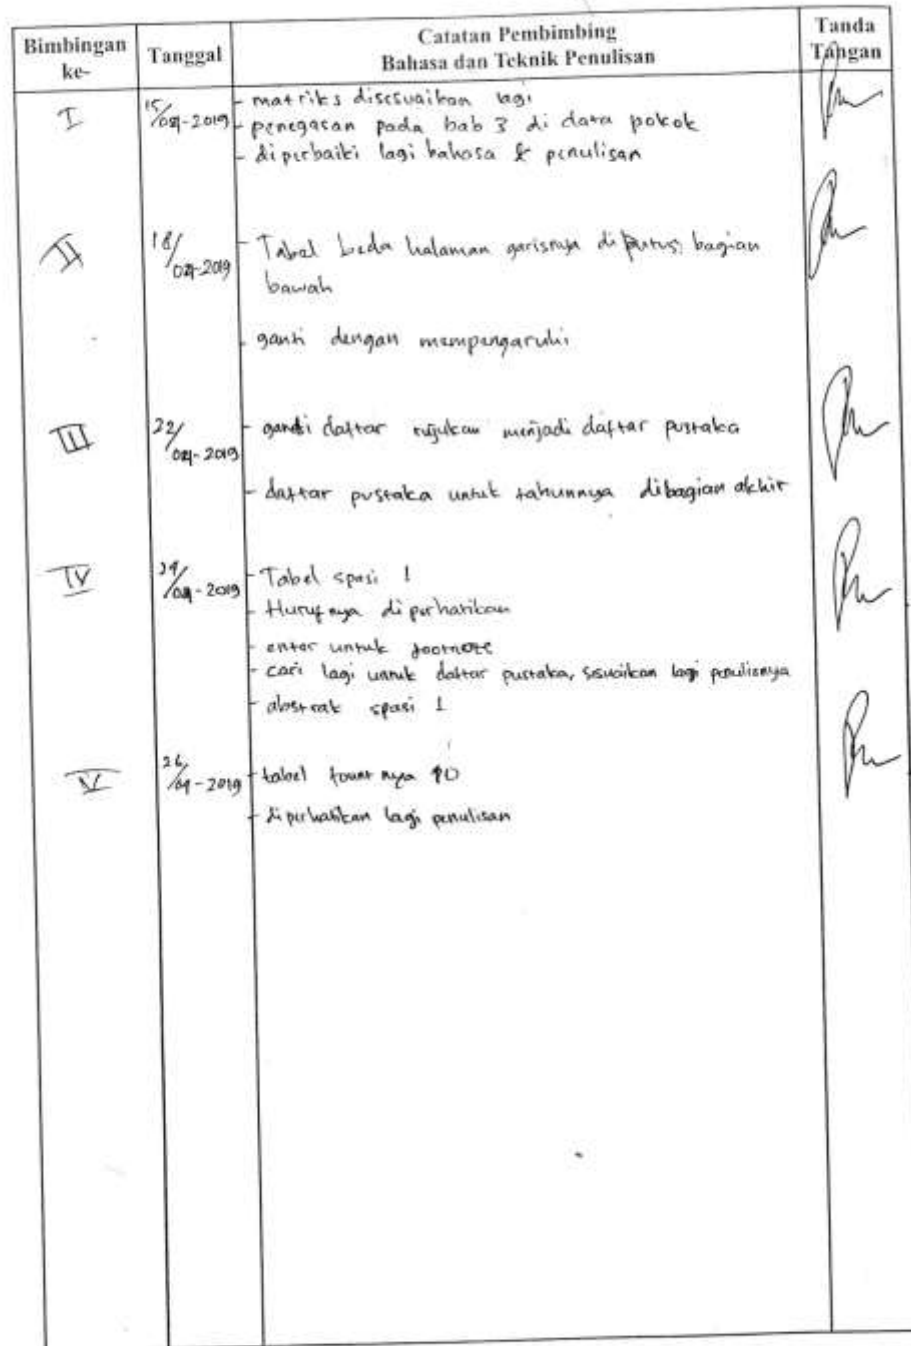 Bimbingan ke-
Tanggal
Catatan Pembimbing
Bahasa dan Teknik Penulisan
Tanda Tangan
I
15/04-2019
- matriks disesuaikan lagi
- penegasan pada bab 3 di data pokok
- diperbaiki lagi bahasa & penulisan
II
18/04-2019
- Tabel beda halaman garisnya diputus bagian
bawah
- ganti dengan mempengaruhi
III
22/04-2019
- ganti daftar rujukan menjadi daftar pustaka
- daftar pustaka untuk tahunnya dibagian akhir
IV
/04-2019
- Tabel spasi 1
- Hurufnya diperhatikan
- enter untuk footnote
- cari lagi untuk daftar pustaka, sesuaikan lagi
- abstrak spasi 1
V
26/04-2019
- tabel nya 10
- diperhatikan lagi penulisan